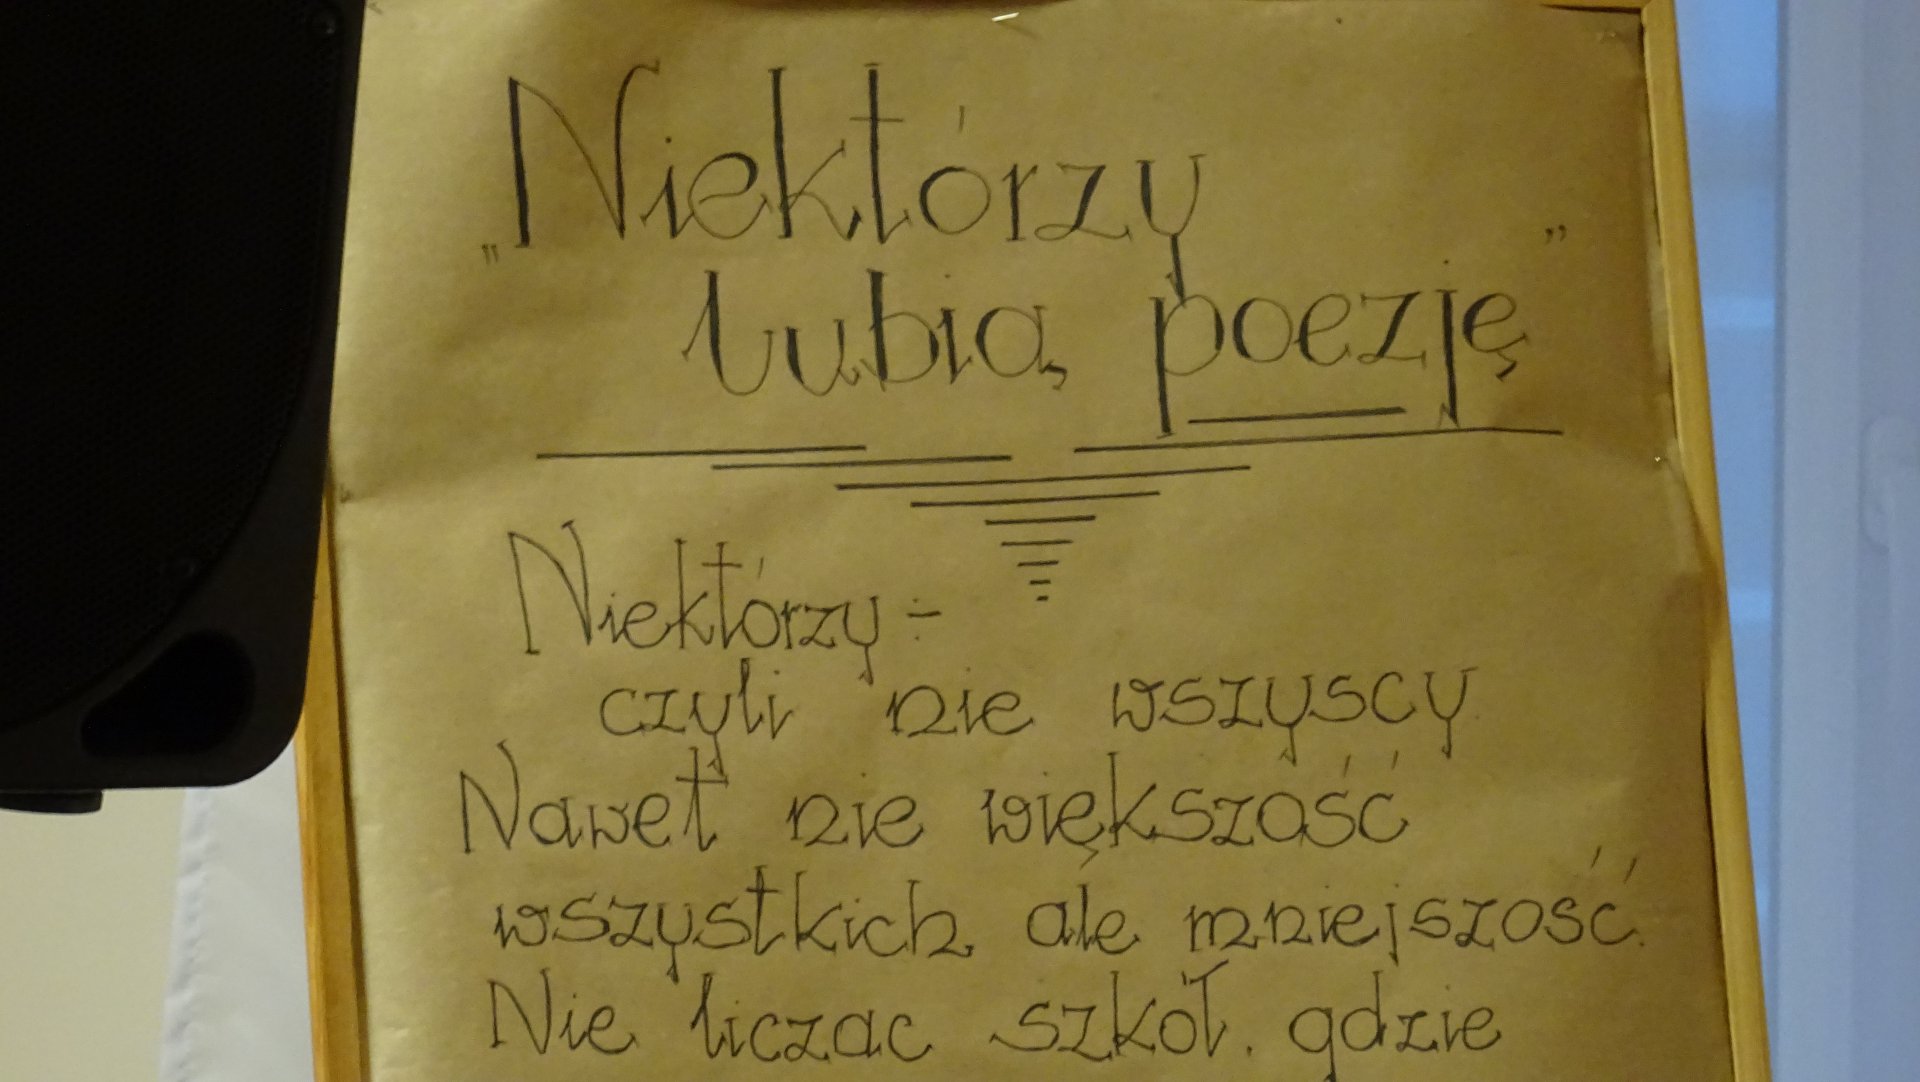 „Niektórzy
lubią poezję”
Niektórzy -
czyli nie wszyscy.
Nawet nie większość
wszystkich ale mniejszość.
Nie licząc szkół, gdzie